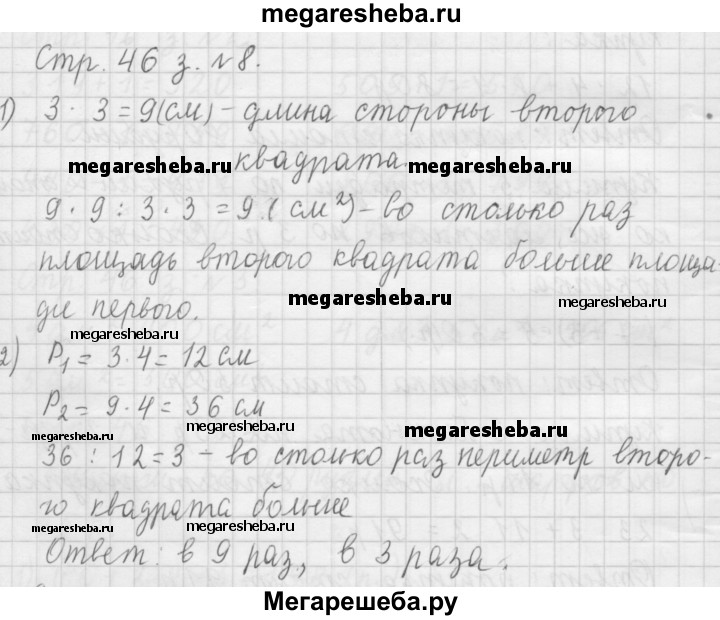 megaresheba.ru
Стр. 46 з. №8.
1) 3 · 3 = 9(см) - длина стороны второго
megaresheba.ru квадрата. megaresheba.ru
9 · 9 : 3 · 3 = 9 (см²) - во столько раз
площадь второго квадрата больше площа-
ди первого. megaresheba.ru
megaresheba.ru
2) P₁ = 3·4 = 12 см
P₂ = 9·4 = 36 см
megaresheba.ru megaresheba.ru
36 : 12 = 3 - во столько раз периметр второ-
го квадрата больше
megaresheba.ru megaresheba.ru megaresheba.ru
Ответ: в 9 раз, в 3 раза.
Мегарешеба.ру